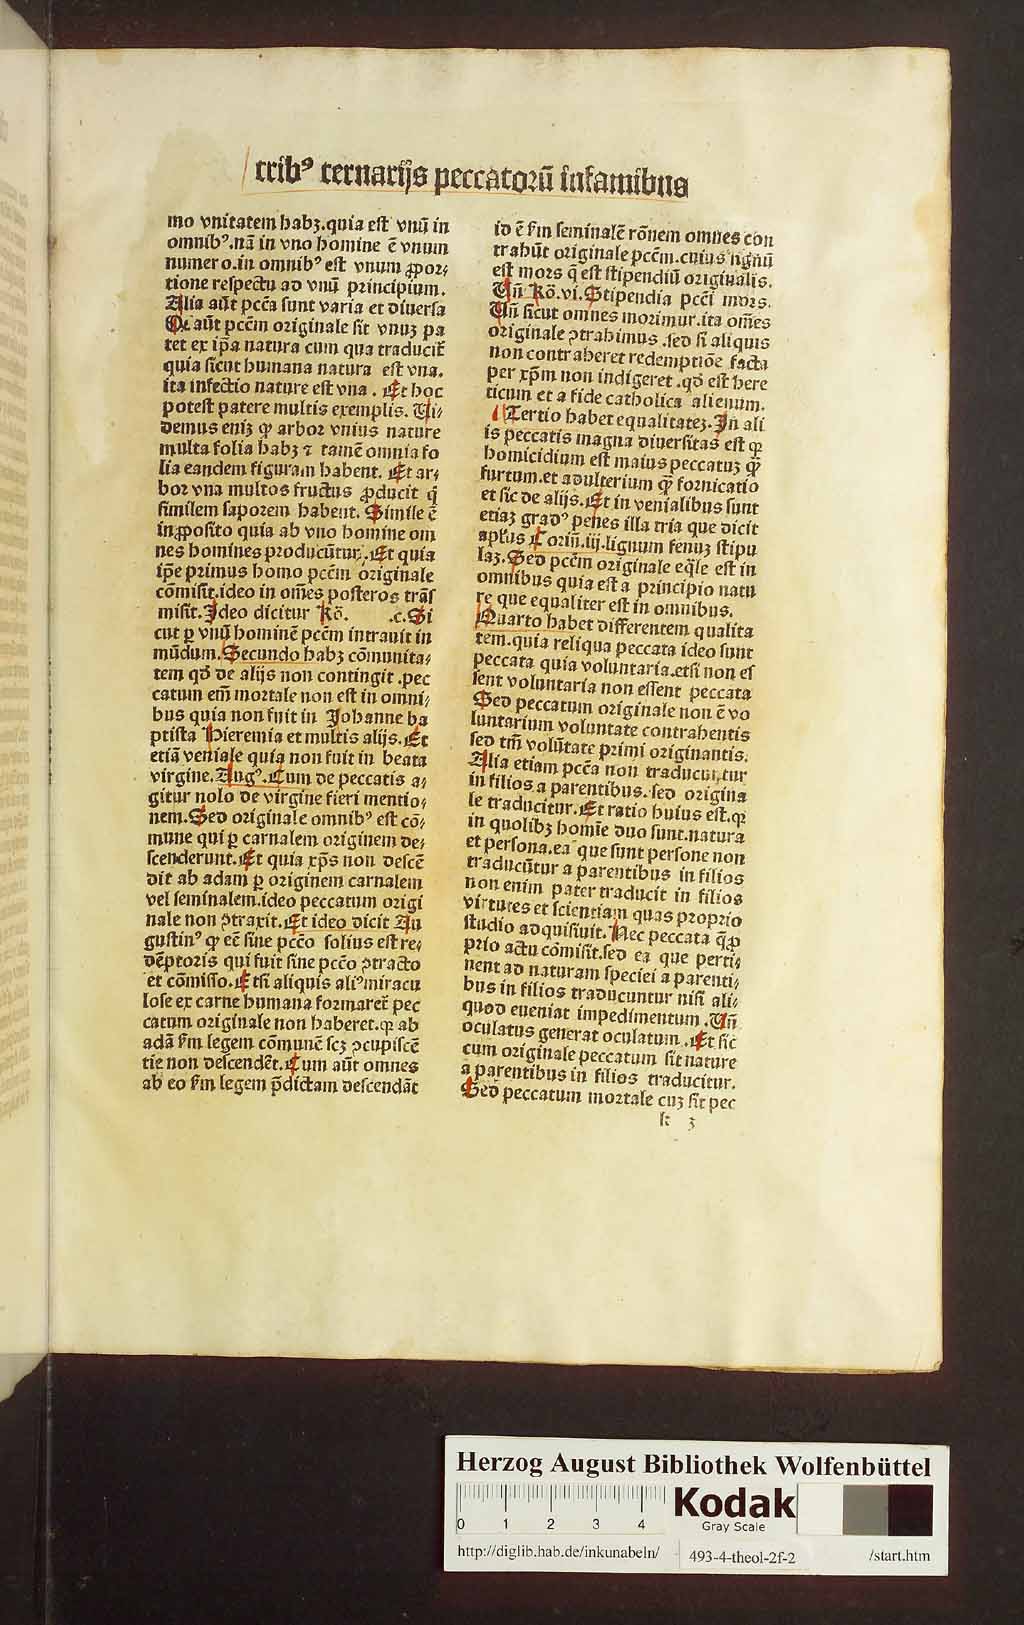 tribꝰ ternarijs peccatorū infamibus
mo vnitatem habꝫ.quia est vnū in
omnibꝰ.nā in vno homine ē vnum
numero.in omnibꝰ est vnum ꝓpor⸗
tione respectu ad vnū principium.
Alia aūt pccā sunt varia et diuersa
Qꝛ aūt pccm̄ originale sit vnuꝫ pa
tet ex ip̄a natura cum qua traducit᷑
quia sicut humana natura est vna.
ita infectio nature est vna . Et hoc
potest patere multis exemplis. Vi⸗
demus eniꝫ ꝙ arbor vnius nature
multa folia habꝫ ⁊ tamē omnia fo
lia eandem figuram habent. Et ar⸗
bor vna multos fructus ꝓducit q̄
similem saporem habent. Simile ē
in ꝓposito quia ab vno homine om
nes homines producūtur. Et quia
ip̄e primus homo pccm̄ originale
cōmisit.ideo in om̄es posteros trās
misit.Ideo dicitur Rō. .c.Si
cut ꝑ vnū hominē pccm̄ intrauit in
mūdum.Secundo habꝫ cōmunita⸗
tem qđ de alijs non contingit .pec
catum em̄ mortale non est in omni⸗
bus quia non fuit in Johanne ba
ptista Hieremia et multis alijs. Et
etiā veniale quia non fuit in beata
virgine. Augꝰ. Cum de peccatis a⸗
gitur nolo de virgine fieri mentio⸗
nem.Sed originale omnibꝰ est cō⸗
mune qui ꝑ carnalem originem de⸗
scenderunt.Et quia xp̄s non descē
dit ab adam ꝑ originem carnalem
vel seminalem.ideo peccatum origi
nale non ꝯtraxit. Et ideo dicit Au
gustinꝰ ꝙ eē sine pccō solius est re⸗
dēptoris qui fuit sine pccō ꝯtracto
et cōmisso. Etsi aliquis aliꝰ miracu
lose ex carne humana formaret᷑ pec
catum originale non haberet.qꝛ ab
adā fm̄ legem cōmunē scꝫ ꝯcupiscē
tie non descendēt. Cum aūt omnes
ab eo fm̄ legem p̄dictam descendāt
id ē fm̄ seminalē rōnem omnes con
trahūt originale pccm̄.cuius signū
est mors q̄ est stipendiū originalis.
Vñ Rō.vi. Stipendia pccī mors.
Vñ sicut omnes morimur.ita om̄es
originale ꝯtrahimus .sed si aliquis
non contraheret redemptiōe facta
per xp̄m non indigeret .qđ est here
ticum et a fide catholica alienum.
Tertio habet equalitateꝫ. In ali
is peccatis magna diuersitas est qꝛ
homicidium est maius peccatuꝫ ꝙ̄
furtum.et adulterium ꝙ̄ fornicatio
et sic de alijs. Et in venialibus sunt
etiaꝫ gradꝰ penes illa tria que dicit
apl̄us Corin̄.iij.lignum fenuꝫ stipu
laꝫ.Sed pccm̄ originale eq̄le est in
omnibus quia est a principio natu
re que equaliter est in omnibus.
Quarto habet differentem qualita
tem.quia reliqua peccata ideo sunt
peccata quia voluntaria.etsi non es
sent voluntaria non essent peccata
Sed peccatum originale non ē vo
luntarium voluntate contrahentis
sed tm̄ volūtate primi originantis.
Alia etiam pccā non traducūtur
in filios a parentibus. sed origina
le traducitur. Et ratio huius est.qꝛ
in quolibꝫ homīe duo sunt.natura
et persona.ea que sunt persone non
traducūtur a parentibus in filios
non enim pater traducit in filios
virtutes et scientiam quas proprio
studio adquisiuit. Nec peccata q̄ ꝓ
prio actu cōmisit.sed ea que perti⸗
nent ad naturam speciei a parenti⸗
bus in filios traducuntur nisi ali⸗
quod eueniat impedimentum . Vñ
oculatus generat oculatum . Et sic
cum originale peccatum sit nature
a parentibus in filios traducitur.
Sed peccatum mortale cuꝫ sit pec
Herzog August Bibliothek Wolfenbüttel
0 1 2 3 4
Kodak
Gray Scale
http://diglib.hab.de/inkunabeln/
493-4-theol-2f-2
/start.htm